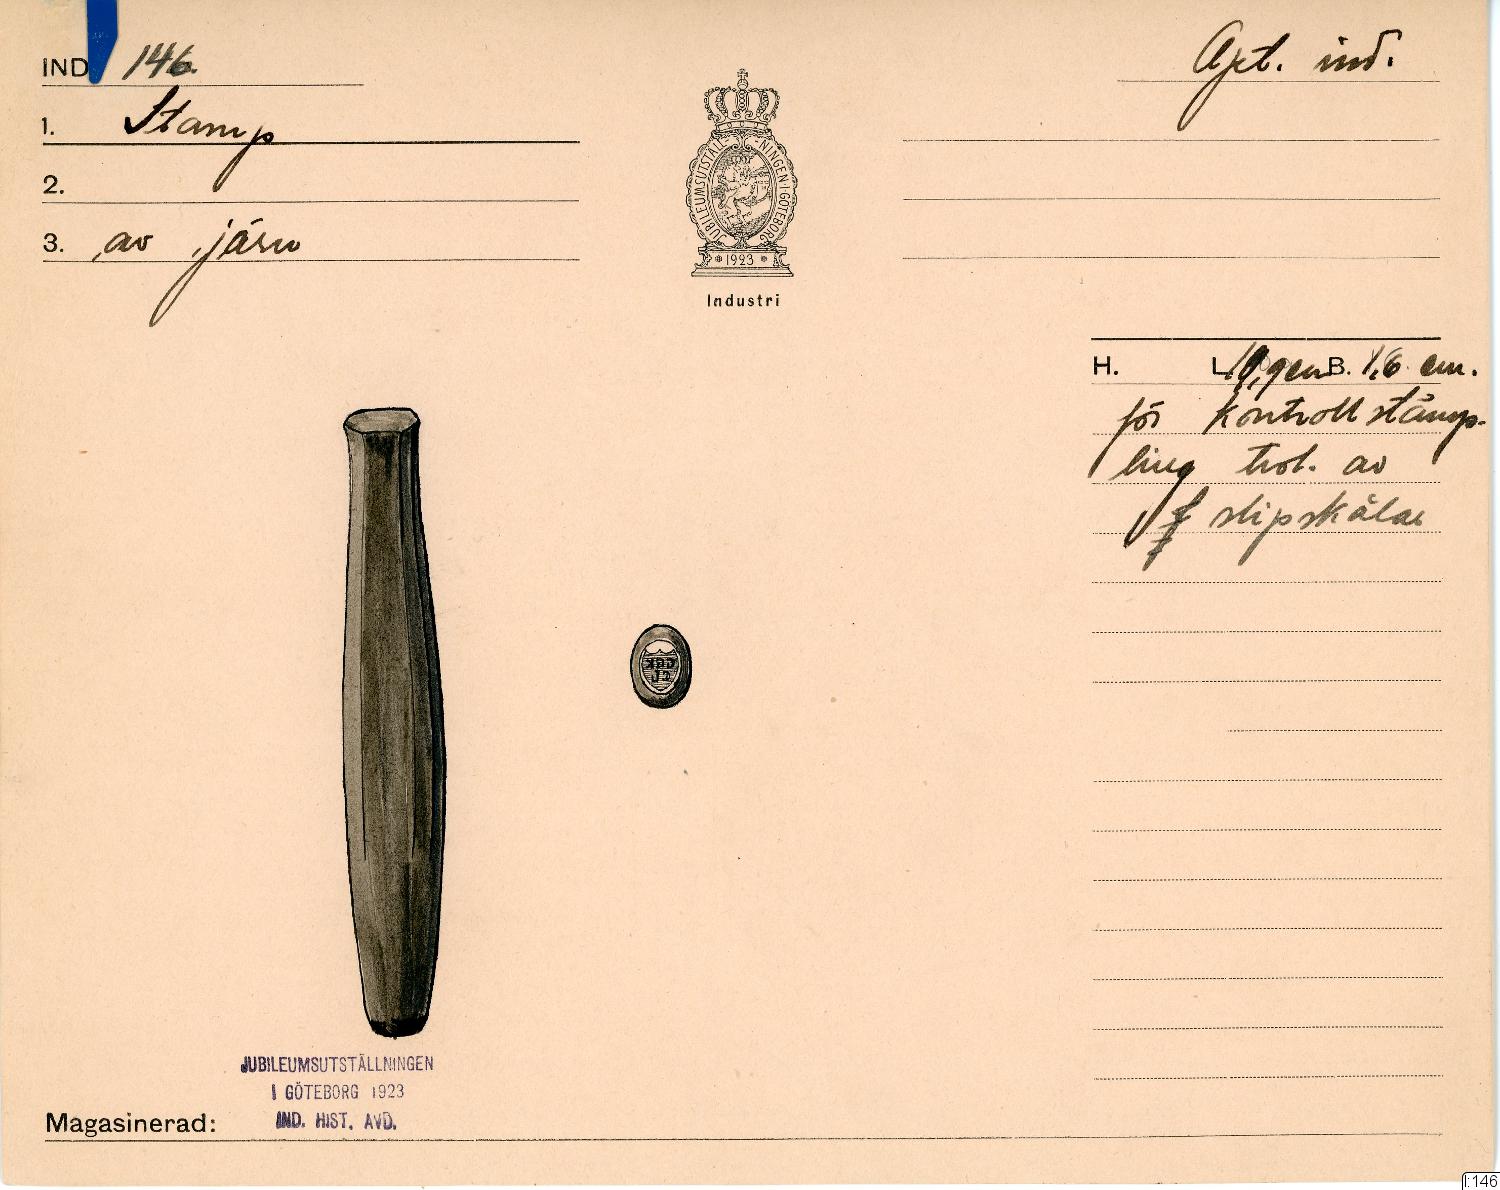 IND 146.
Apt. ind.
1. Stamp
2.
3. av järn
JUBILEUMSUTSTÄLLNINGEN I GÖTEBORG
1923
Industri
H. L. 10,9 cm B. 1,6 cm.
för kontrollstämp-
ling trol. av
slipskålar
JUBILEUMSUTSTÄLLNINGEN
I GÖTEBORG 1923
IND. HIST. AVD.
Magasinerad:
I:146